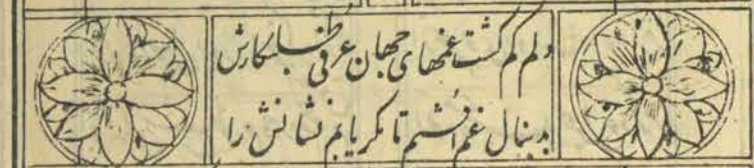 دلم گم گشت غمهای جهان عرفی طلبکارش
بدنبال غم افتم تا مگر یابم نشانش را